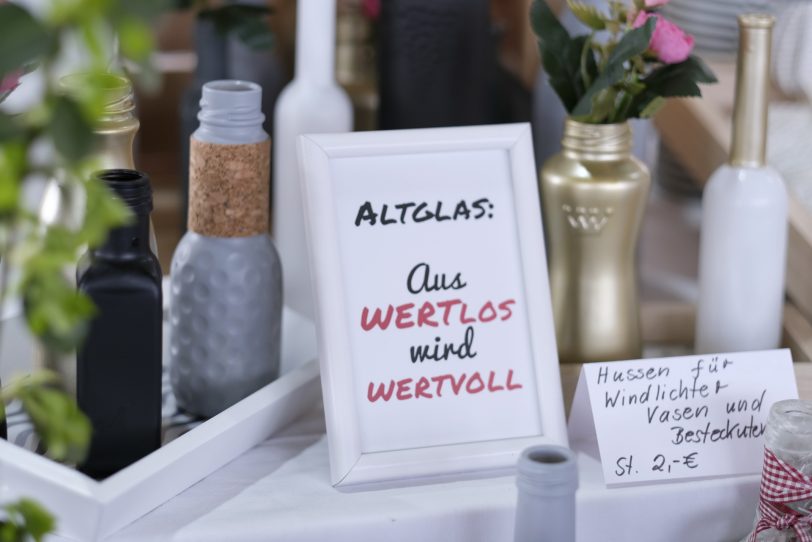 ALTGLAS:
Aus
WERTLOS
wird
WERTVOLL
Hussen für
Windlichter
Vasen und
St. 2,-€